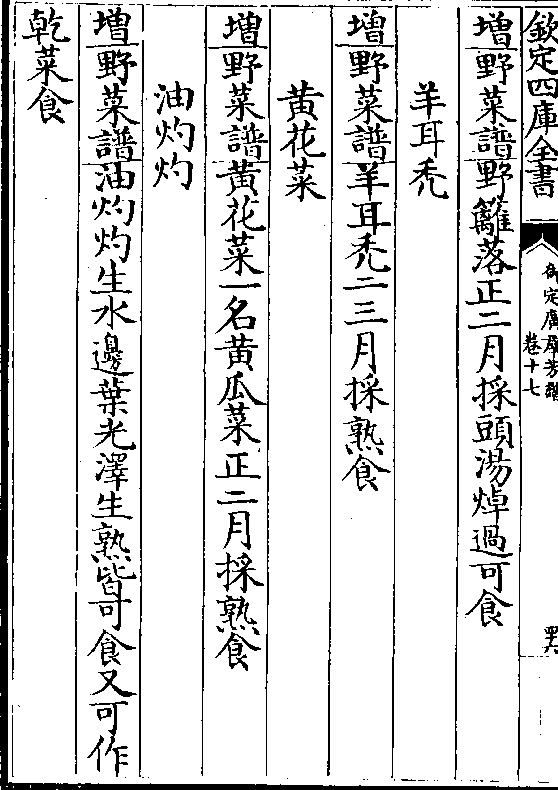 欽定四庫全書
御定廣羣芳譜
卷十七
罕六
增野菜譜野籬落正二月採頭湯焯過可食
羊耳禿
增野菜譜羊耳禿二三月採熟食
黃花菜
增野菜譜黃花菜一名黃瓜菜正二月採熟食
油灼灼
增野菜譜油灼灼生水邊葉光澤生熟皆可食又可作
乾菜食